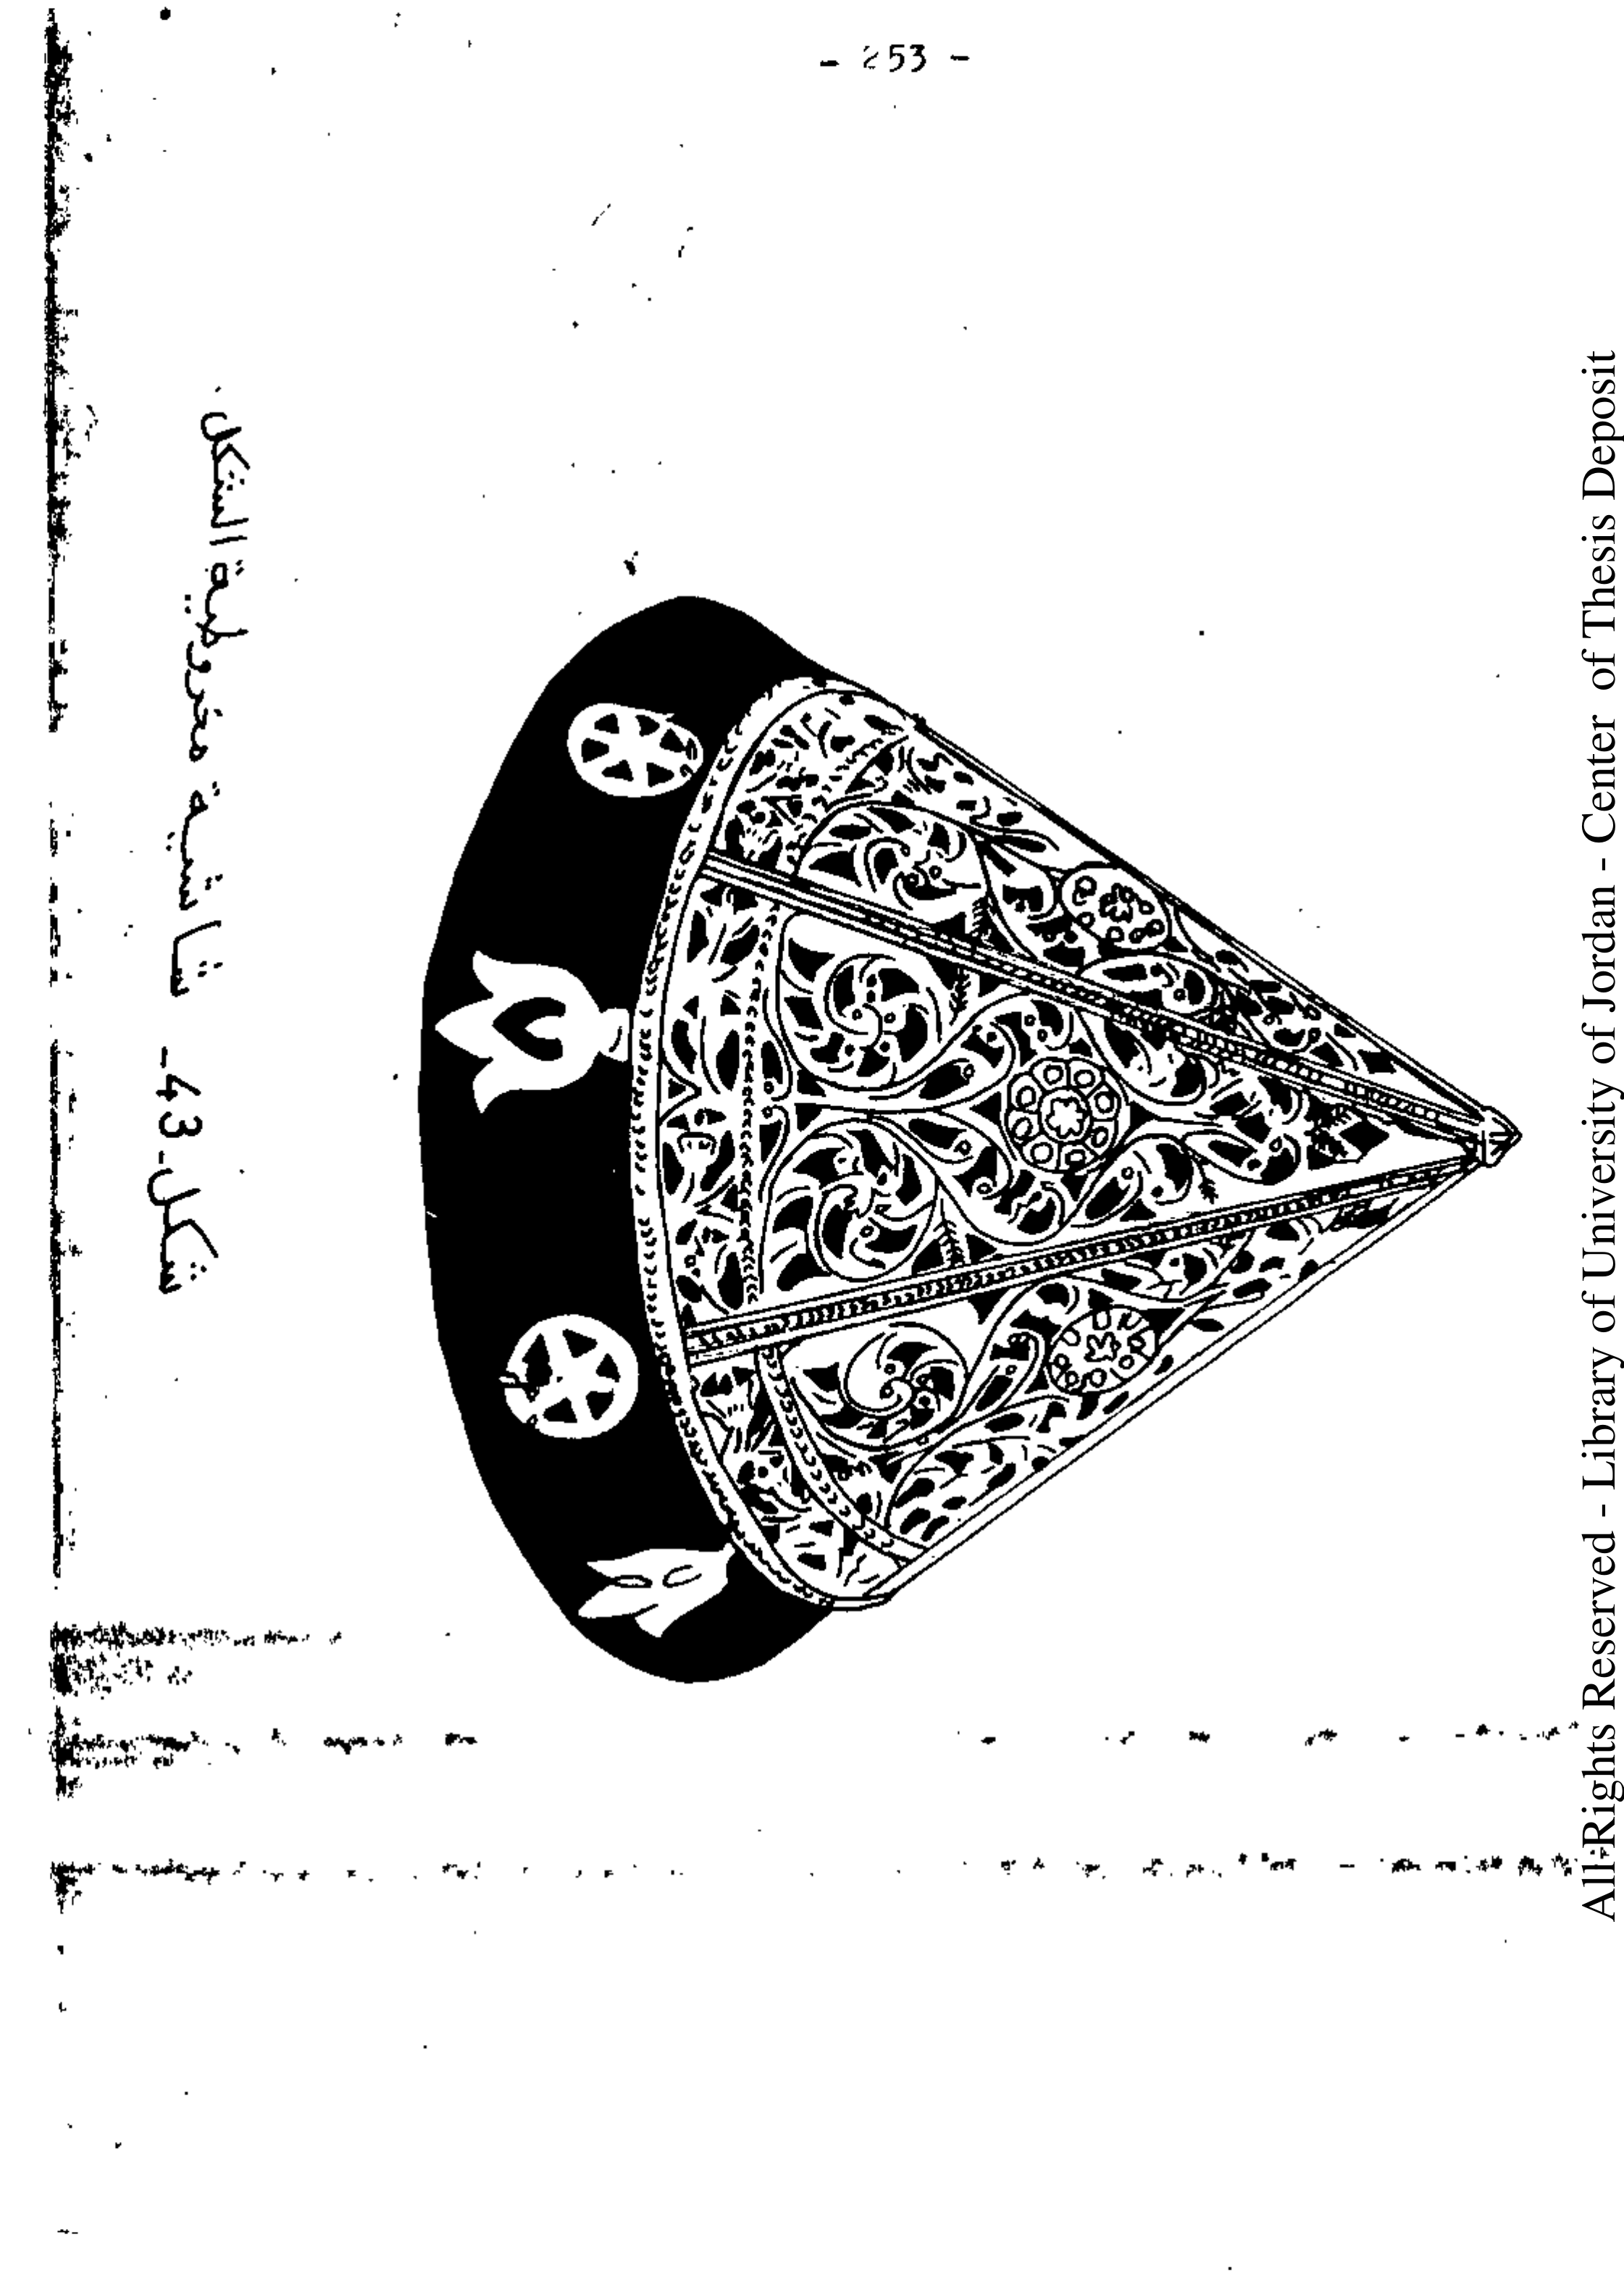 - 253 -
شكل -43- شاشية مخروطية الشكل.
All Rights Reserved - Library of University of Jordan - Center of Thesis Deposit